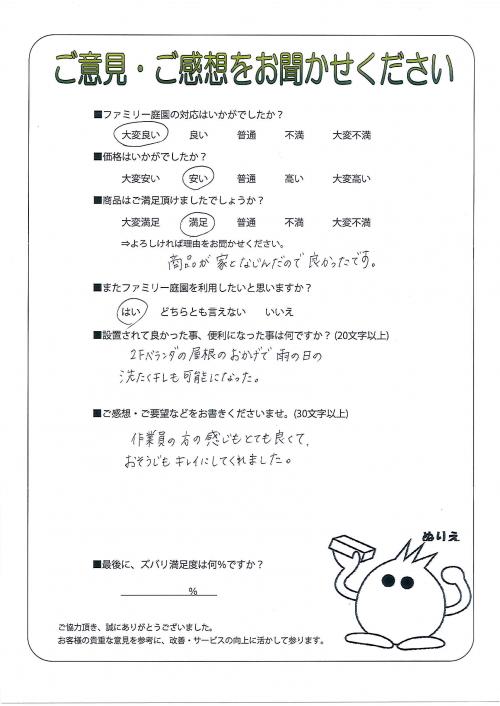 ご意見・ご感想をお聞かせください
■ファミリー庭園の対応はいかがでしたか？
大変良い 良い 普通 不満 大変不満
■価格はいかがでしたか？
大変安い 安い 普通 高い 大変高い
■商品はご満足頂けましたでしょうか？
大変満足 満足 普通 不満 大変不満
⇒よろしければ理由をお聞かせください。
商品が家となじんだので良かったです。
■またファミリー庭園を利用したいと思いますか？
はい どちらとも言えない いいえ
■設置されて良かった事、便利になった事は何ですか？(20文字以上)
2Fベランダの屋根のおかげで雨の日の
洗たくホしも可能になった。
■ご感想・ご要望などをお書きくださいませ。(30文字以上)
作業員の方の感じもとても良くて、
おそうじもキレイにしてくれました。
ぬりえ
■最後に、ズバリ満足度は何%ですか？
%
ご協力頂き、誠にありがとうございました。
お客様の貴重な意見を参考に、改善・サービスの向上に活かして参ります。